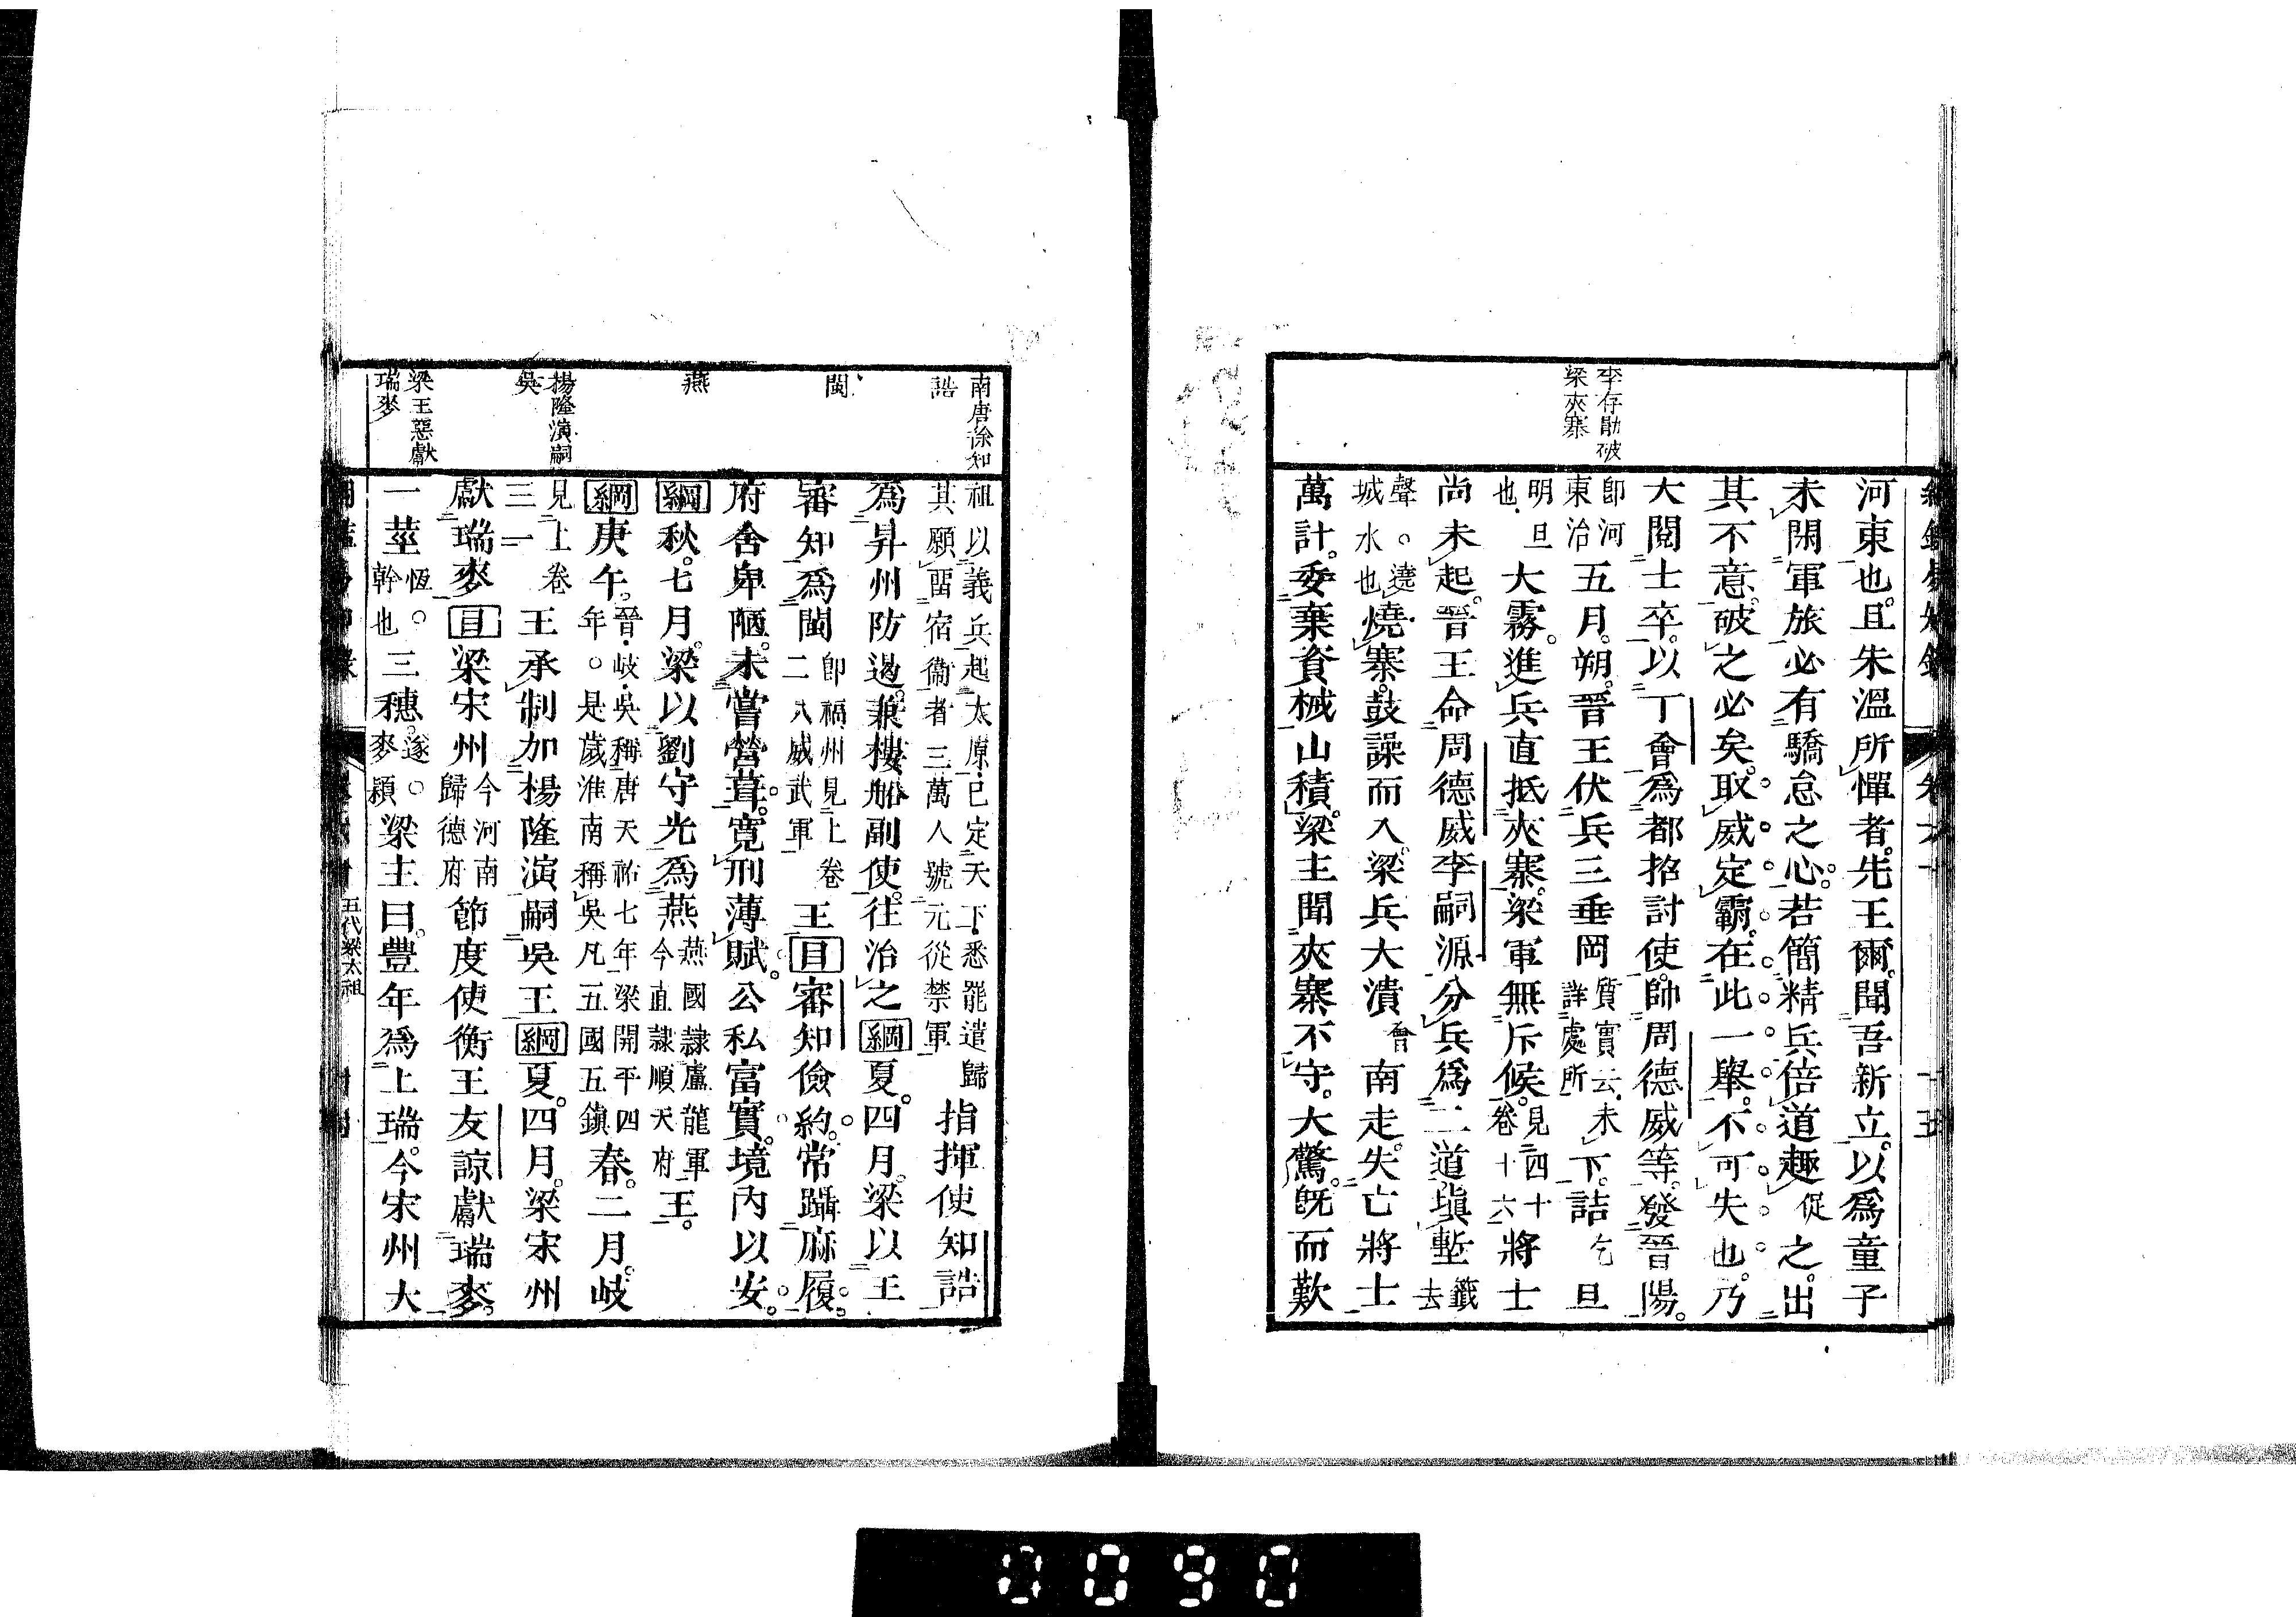 李存勛破
梁夾寨
河東也。且朱溫所憚者。先王爾。聞吾新立。以為童子
未閑軍旅。必有驕怠之心。若簡精兵。倍道趣促之。出
其不意。破之必矣。取威定霸。在此一舉。不可失也。乃
大閱士卒。以丁會為都招討使。帥周德威等。發晉陽。
卽河東治五月。朔。晉王伏兵三垂岡質實云未詳處所下。詰乞旦
明旦也大霧。進兵直抵夾寨。梁軍無斥候。見四十卷十六將士
尚未起。晉王命周德威李嗣源分兵為二道。塡塹籤去
聲。遶城水也燒寨。鼓譟而入。梁兵大潰會南走。失亡將士
萬計。委棄資械山積。梁主聞夾寨不守。大驚。旣而歎
南唐徐知
誥
閩
燕
楊隆演嗣
吳
梁王惡獻
瑞麥
祖以義兵起太原已定天下悉罷遣歸其願畱宿衞者三萬人號元從禁軍指揮使知誥
為昇州防遏兼樓船副使。往治之綱夏。四月。梁以王
審知為閩卽福州見上卷二八威武軍王目審知儉約。常躡麻履。
府舍卑陋。未嘗營葺。寬刑薄賦。公私富實。境內以安。
綱秋。七月。梁以劉守光為燕燕國隷盧龍軍今直隷順天府王。
綱庚午。晉岐吳稱唐天祐七年梁開平四年。是歲淮南稱吳凡五國五鎭春。二月。岐
見上卷三一王承制加楊隆演嗣吳王綱夏。四月。梁宋州
獻瑞麥目梁宋州今河南歸德府節度使衡王友諒獻瑞麥。
一莖恆。幹也三穗。遂。麥穎梁主曰。豐年為上瑞。今宋州大
五代梁太祖
0090